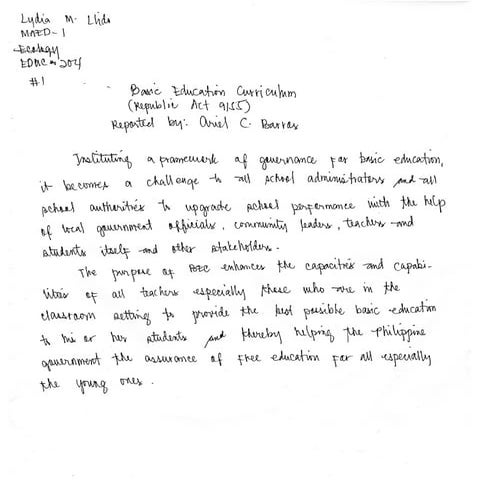 Lydia M. Llido
MAED-1
Ecology
EDUC 204
#1
Basic Education Curriculum
(Republic Act 9155)
Reported by: Ariel C. Barras
Instituting a framework of governance for basic education,
it becomes a challenge to all school administrators and all
school authorities to upgrade school performance with the help
of local government officials, community leaders, teachers and
students itself and other stakeholders.
The purpose of BEC enhances the capacities and capabi-
lities of all teachers especially those who are in the
classroom setting to provide the best possible basic education
to his or her students and thereby helping the Philippine
government the assurance of free education for all especially
the young ones.